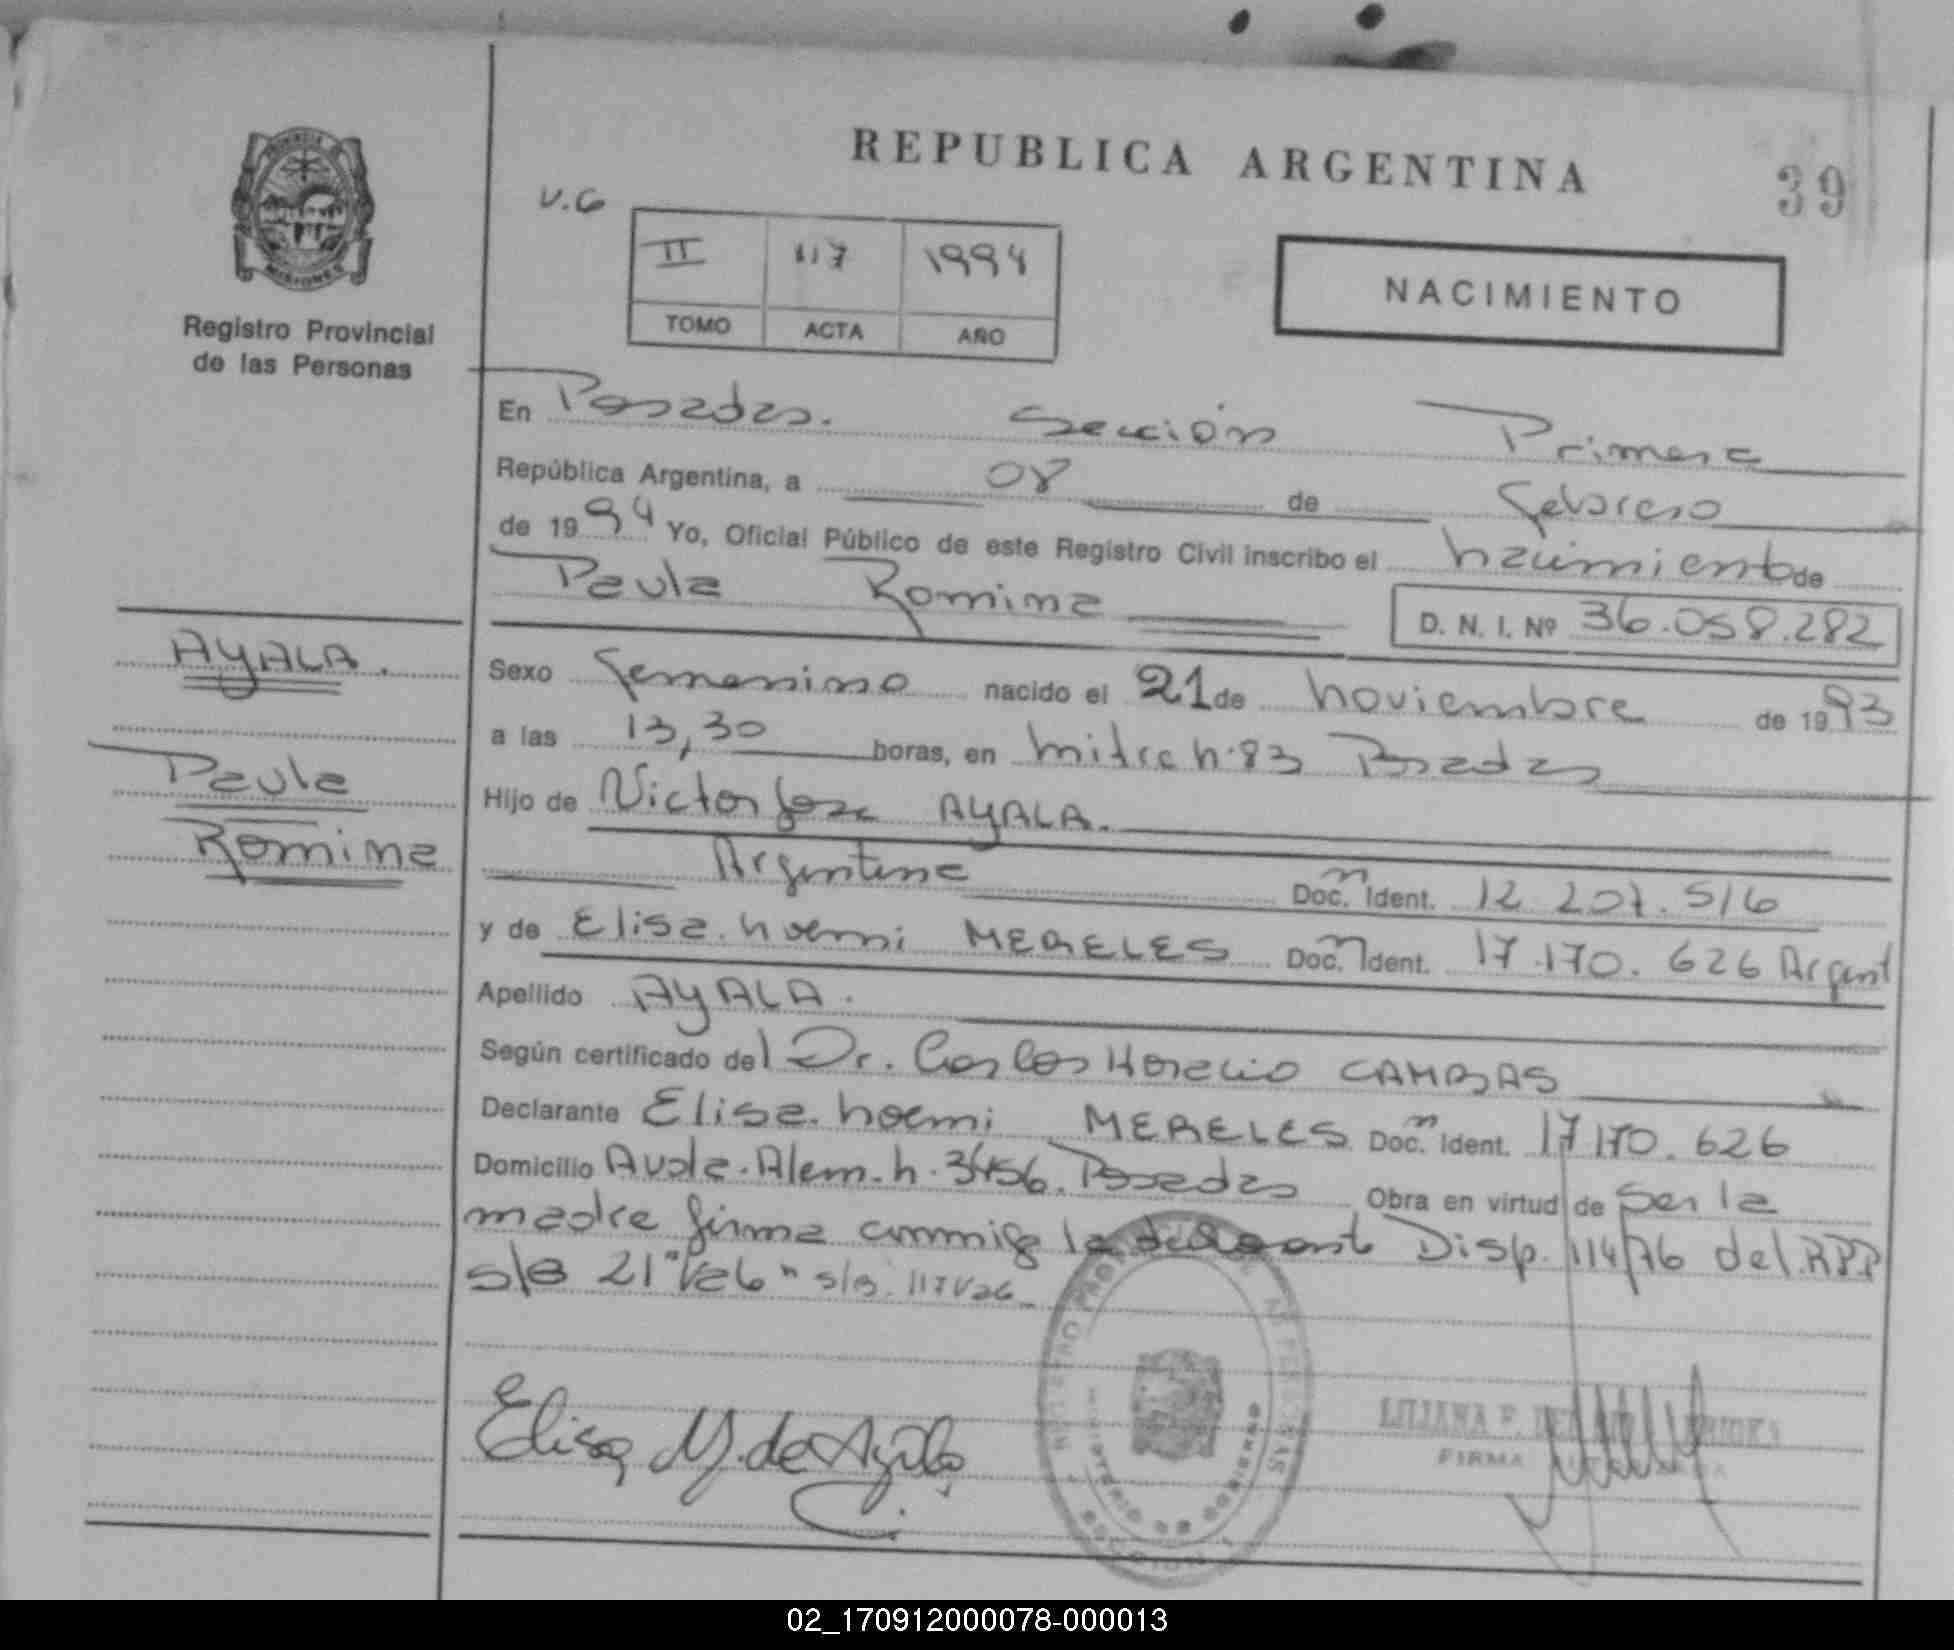 REPUBLICA ARGENTINA
39
V.6
II 117 1994
TOMO ACTA AÑO
NACIMIENTO
MISIONES
Registro Provincial
de las Personas
En Posadas. Sección Primera
República Argentina, a 08 de febrero
de 1994 Yo, Oficial Público de este Registro Civil inscribo el nacimiento de
Paula Romina
D. N. I. Nº 36.058.282
AYALA.
Paula
Romina
Sexo femenino nacido el 21 de noviembre de 1993
a las 13,30 horas, en mitre n. 83 Posadas
Hijo de Victor Jose AYALA.
Argentina Doc. Ident. 12 207.516
y de Elisa. noemi MERELES Doc. Ident. 17.170.626 Argent
Apellido AYALA.
Según certificado del Dr. Carlos Horacio CAMBAS
Declarante Elisa. noemi MERELES Doc. Ident. 17 170.626
Domicilio Avda. Alem. n. 3456. Posadas Obra en virtud de ser la
madre firma conmigo la Disp. 114/76 del RPP
s/B 21 "Vale" s/B. 117 Vale
Elisa M. de Ayala
LILIANA F.
FIRMA
MINISTERIO DE GOBIERNO
02_170912000078-000013